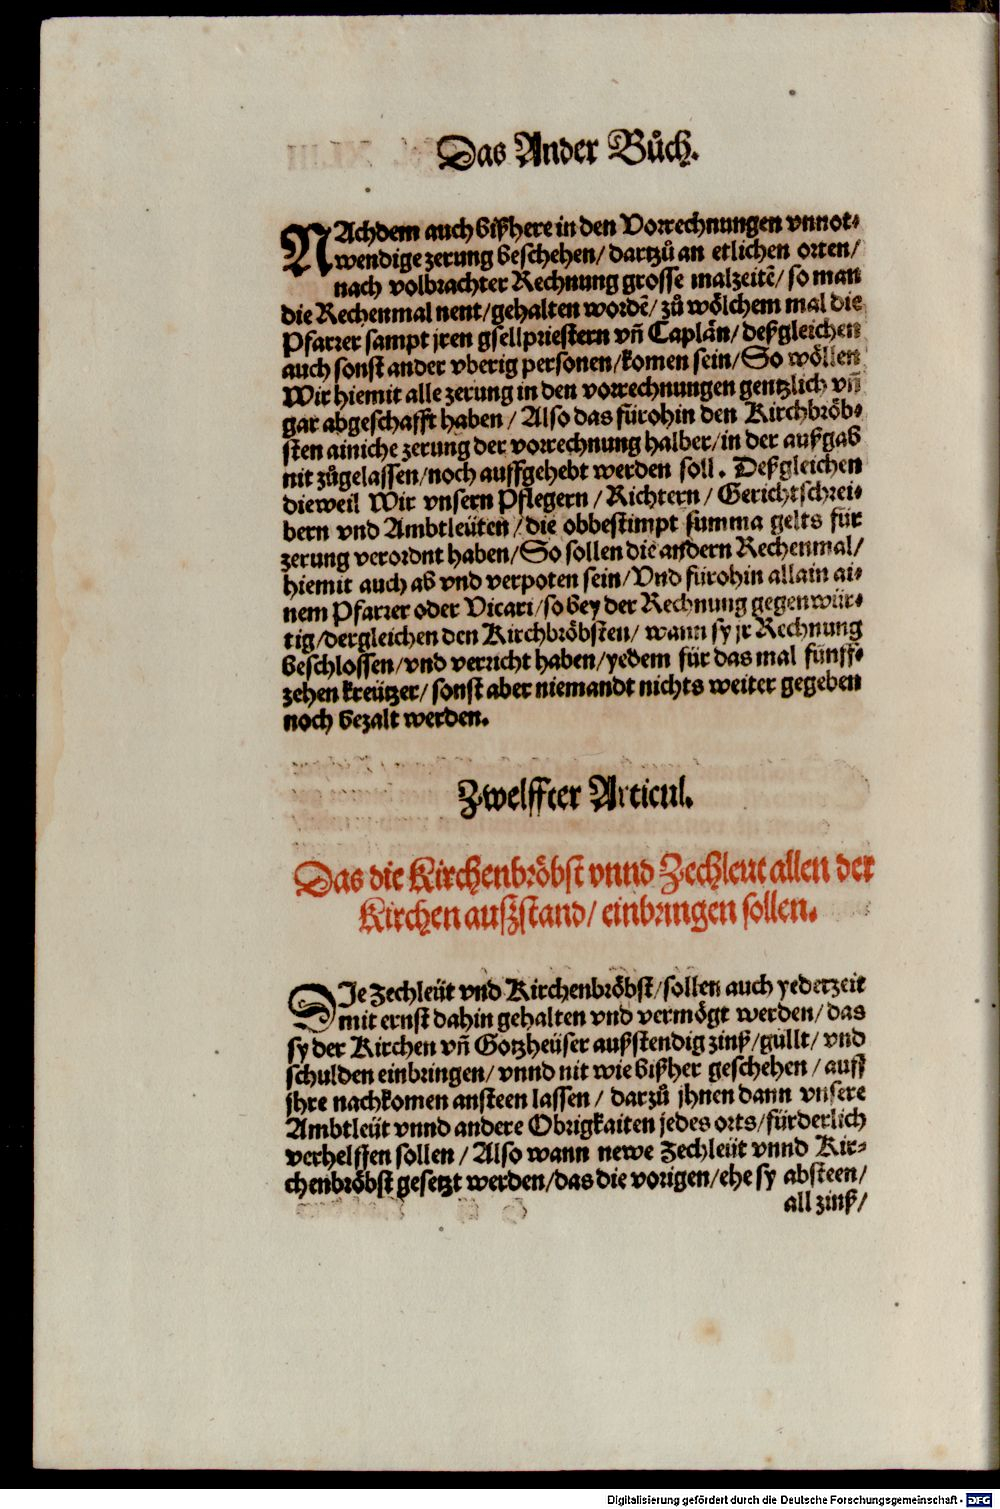 Das Ander Bůch.
NAchdem auch bißhere in den Vorrechnungen vnnot-
wendige zerung beschehen/ dartzů an etlichen orten/
nach volbrachter Rechnung grosse malzeitē/ so man
die Rechenmal nent/ gehalten wordē/ zů wölchem mal die
Pfarrer sampt jren gsellpriestern vñ Caplän/ deßgleichen
auch sonst ander vberig personen/ komen sein/ So wöllen
Wir hiemit alle zerung in den vorrechnungen gentzlich vñ
gar abgeschafft haben/ Also das fürohin den Kirchbröb-
sten ainiche zerung der vorrechnung halber/ in der außgab
nit zůgelassen/ noch auffgehebt werden soll. Deßgleichen
dieweil Wir vnsern Pflegern/ Richtern/ Gerichtschrei-
bern vnd Ambtleüten/ die obbestimpt summa gelts für
zerung verordnt haben/ So sollen die andern Rechenmal/
hiemit auch ab vnd verpoten sein/ Vnd fürohin allain ai-
nem Pfarrer oder Vicari/ so bey der Rechnung gegenwür-
tig/ dergleichen den Kirchbröbsten/ wann sy jr Rechnung
beschlossen/ vnd verricht haben/ yedem für das mal fünff-
zehen kreützer/ sonst aber niemandt nichts weiter gegeben
noch bezalt werden.
Zwelffter Articul.
Das die Kirchenbröbst vnnd Zechleut allen der
Kirchen außstand/ einbringen sollen.
DIe Zechleüt vnd Kirchenbröbst/ sollen auch yederzeit
mit ernst dahin gehalten vnd vermögt werden/ das
sy der Kirchen vñ Gotzheüser außstendig zinß/ güllt/ vnd
schulden einbringen/ vnnd nit wie bißher geschehen/ auff
jhre nachkomen ansteen lassen/ darzů jhnen dann vnsere
Ambtleüt vnnd andere Obrigkaiten jedes orts/ fürderlich
verhelffen sollen/ Also wann newe Zechleüt vnnd Kir-
chenbröbst gesetzt werden/ das die vorigen/ ehe sy absteen/
all zinß/
Digitalisierung gefördert durch die Deutsche Forschungsgemeinschaft - DFG